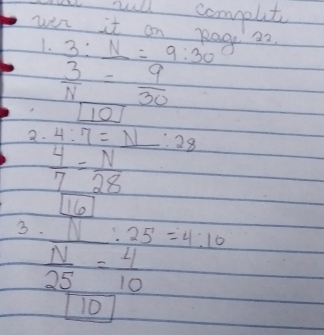 will complete
it on page 22.
1. 3 : N = 9:30
3/N = 9/30
10
2. 4:7 = N : 28
4/7 = N/28
16
3. N : 25 = 4:10
N/25 = 4/10
10